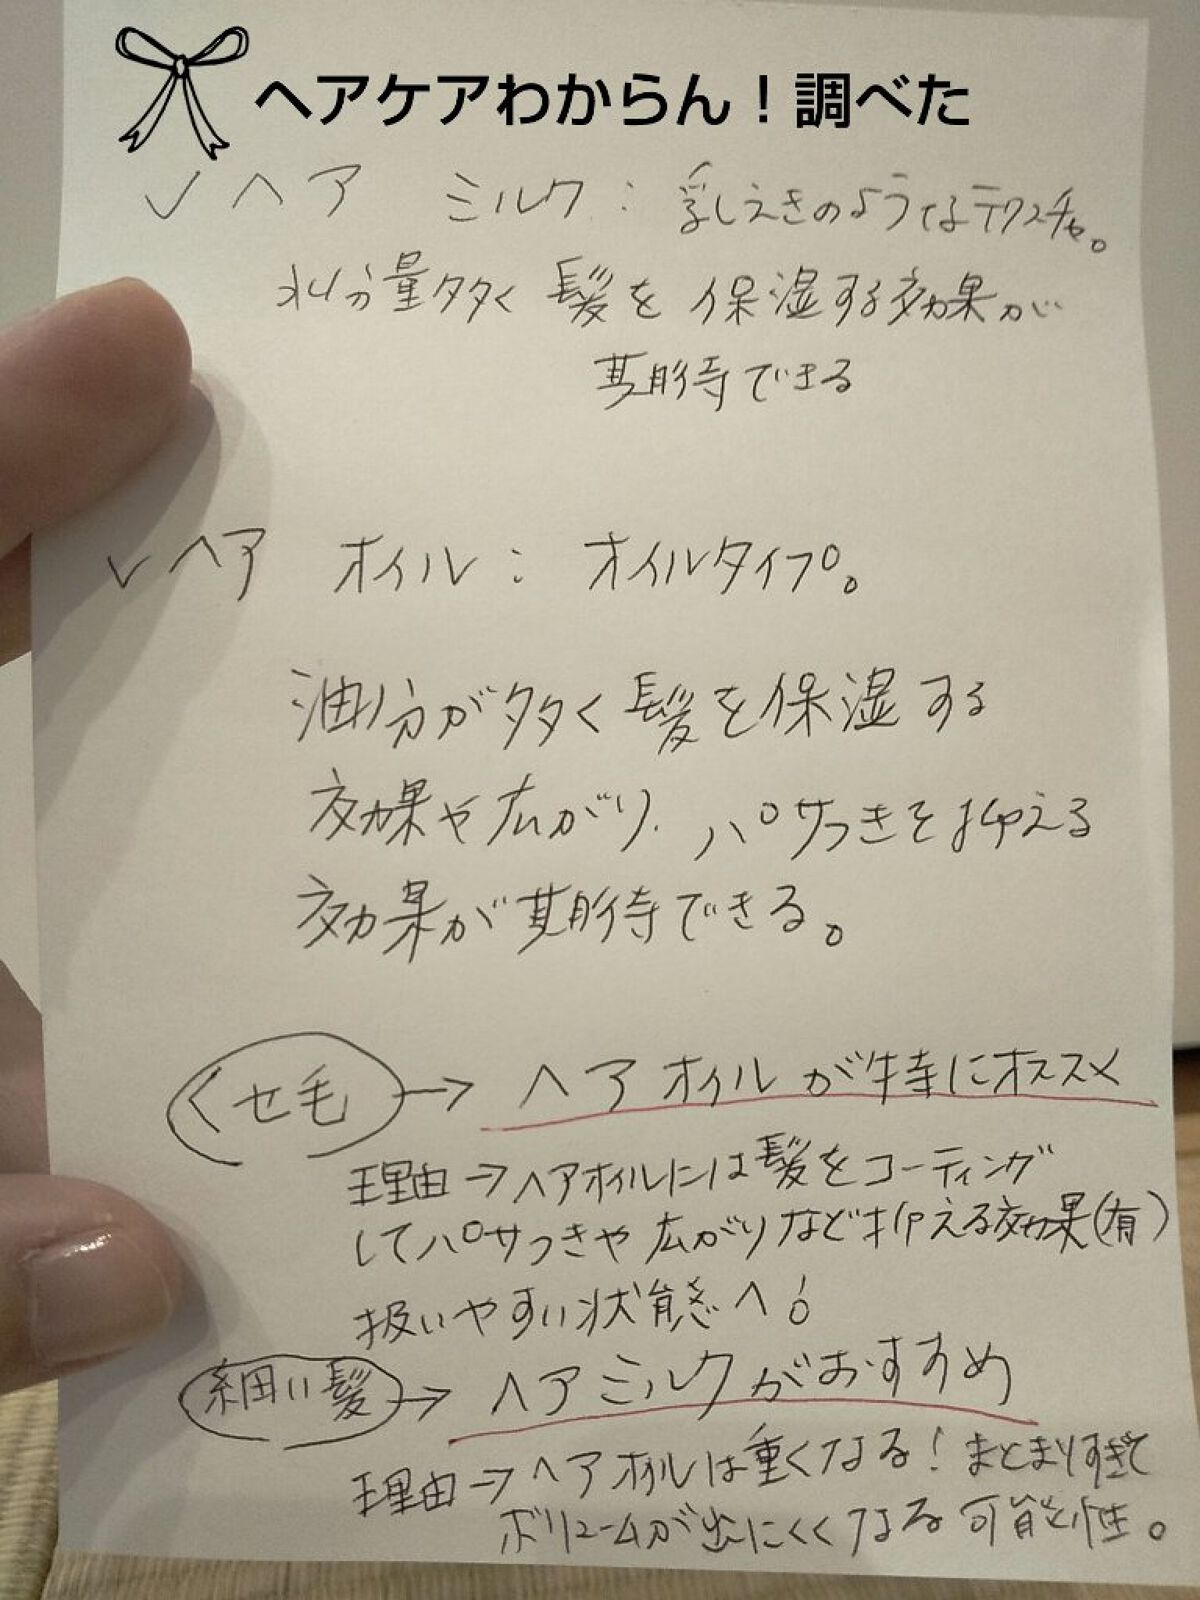 ヘアケアわからん！調べた
✓ヘア ミルク：乳しえきのようなテクスチャ。
水分量多く髪を保湿する効果が
期待できる
✓ヘア オイル：オイルタイプ。
油分が多く髪を保湿する
効果や広がり、パサつきを抑える
効果が期待できる。
くせ毛→ヘアオイルが特にオススメ
理由→ヘアオイルには髪をコーティング
してパサつきや広がりなど抑える効果(有)
扱いやすい状態へ！
細い髪→ヘアミルクがおすすめ
理由→ヘアオイルは重くなる！まとまりすぎて
ボリュームが出にくくなる可能性。